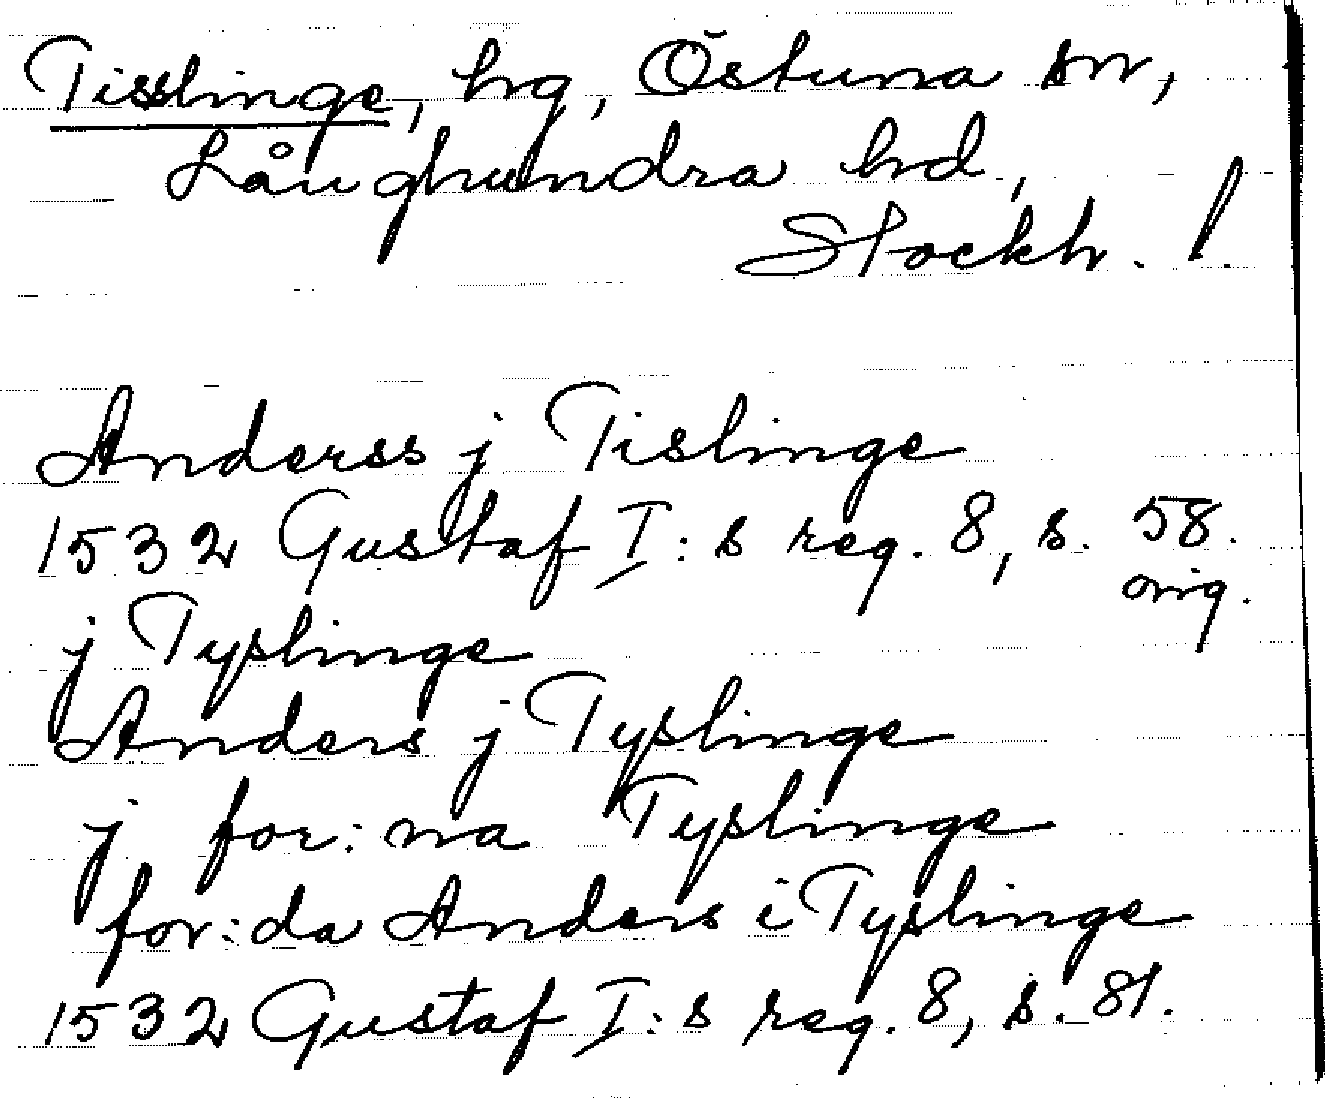 Tisslinge, hg, Östuna sn,
Långhundra hd,
Stockh. l.
Anderss j Tislinge
1532 Gustaf I:s reg. 8, s. 58.
orig.
j Tyslinge
Anders j Tyslinge
j for:na Tyslinge
for:da Anders i Tyslinge
1532 Gustaf I:s reg. 8, s. 81.